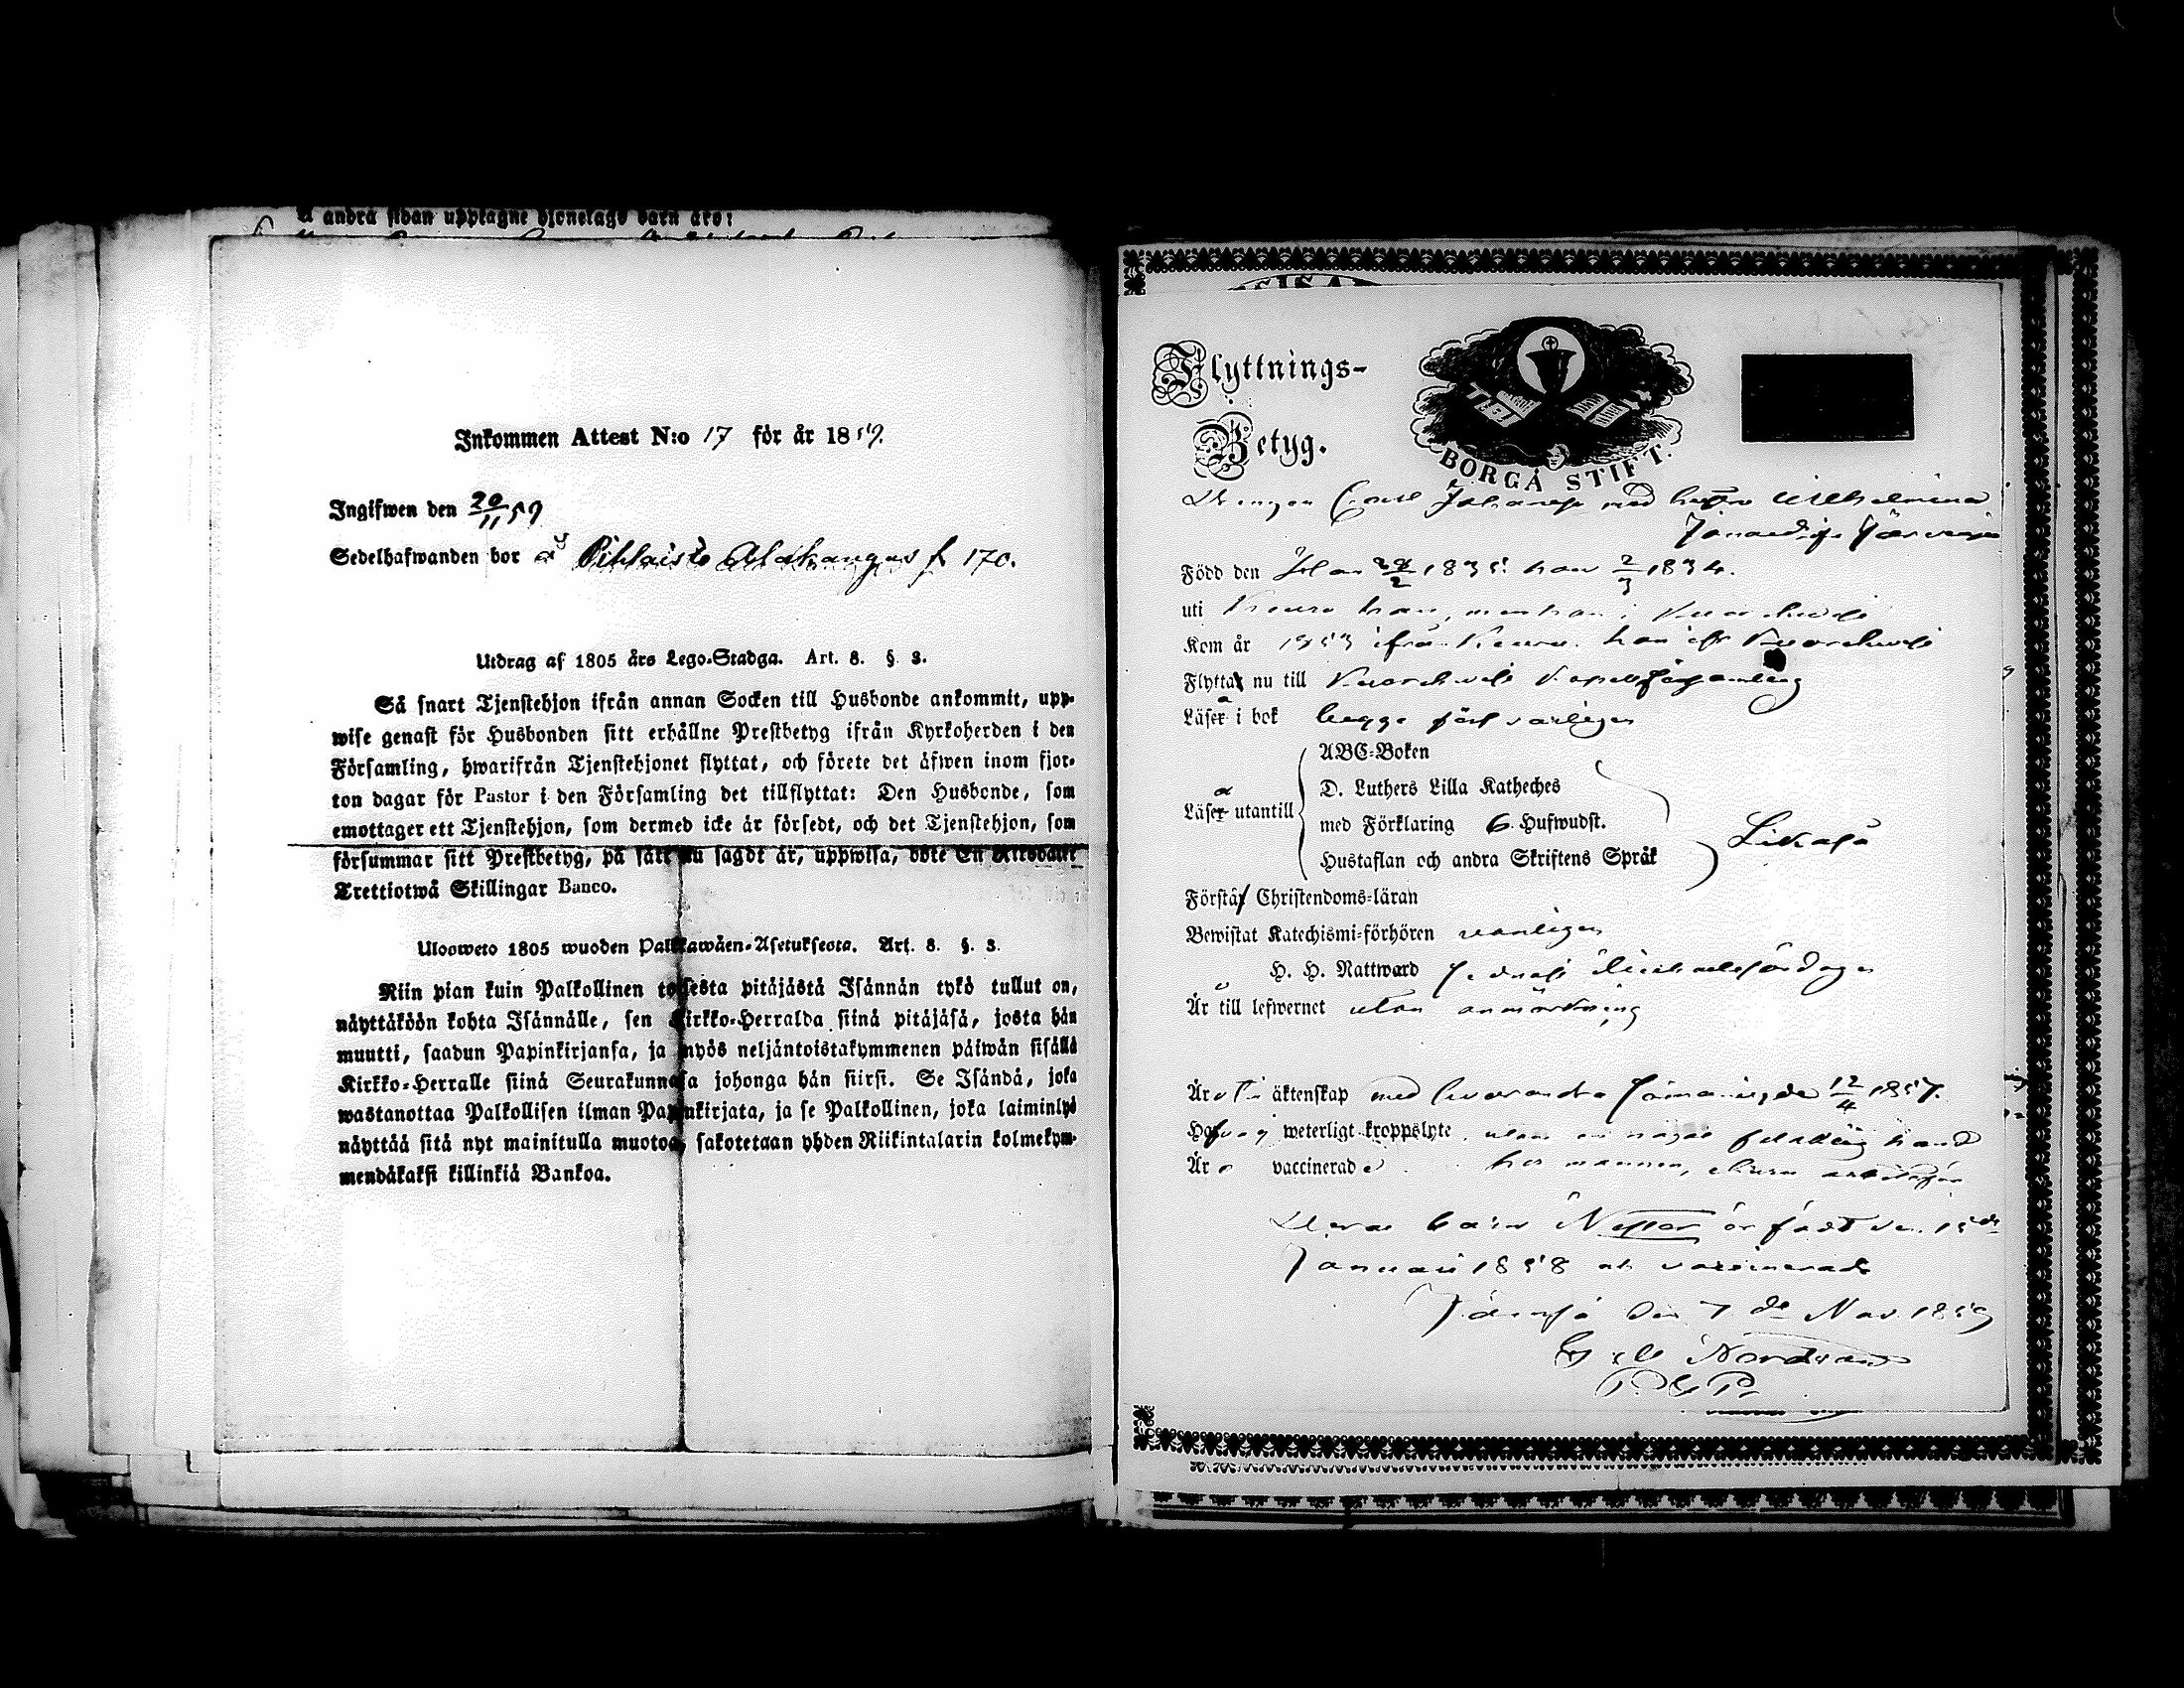 å andra sidan upptagne hjonelags barn äro:
Inkommen Attest N:o 17 för år 1859.
Ingifwen den 20/11 59
Sedelhafwanden bor å Pihlaisto Alakangas f 170.
Utdrag af 1805 års Lego-Stadga. Art. 8. §. 3.
Så snart Tjenstehjon ifrån annan Socken till Husbonde ankommit, upp-
wise genast för Husbonden sitt erhållne Prestbetyg ifrån Kyrkoherden i den
Församling, hwarifrån Tjenstehjonet flyttat, och förete det äfwen inom fjor-
ton dagar för Pastor i den Församling det tillflyttat: Den Husbonde, som
emottager ett Tjenstehjon, som dermed icke är försedt, och det Tjenstehjon, som
försummar sitt Prestbetyg, på sätt nu sagdt är, uppwisa, böte En Riksdaler
Trettiotwå Skillingar Banco.
Ulosweto 1805 wuoden Palkkawäen-Asetuksesta. Art. 8. §. 3.
Niin pian kuin Palkollinen toisesta pitäjästä Isännän tykö tullut on,
näyttäköön kohta Isännälle, sen Kirkko-Herralda siinä pitäjäsä, josta hän
muutti, saadun Papinkirjansa, ja myös neljäntoistakymmenen päiwän sisällä
Kirkko-Herralle siinä Seurakunnasa johonga hän siirsi. Se Isändä, joka
wastanottaa Palkollisen ilman Papinkirjata, ja se Palkollinen, joka laiminlyö
näyttää sitä nyt mainitulla muotoa, sakotetaan yhden Riikintalarin kolmekym-
mendäkaksi killinkiä Bankoa.
Flyttnings-
Betyg.
BORGÅ STIFT.
Drengen Carl Johansson med hustru Wilhelmina
Född den 1835. hon 2/3 1834.
uti Keuru hon, men han i
Kom år 1853 ifrån Keuru. han ifr
Flyttar nu till Kapellförsamling
Läsa i bok begge försvarligen
ABC-Boken
D. Luthers Lilla Katheches
Läsa utantill
med Förklaring 6 Hufwudst.
Hustaflan och andra Skriftens Språk
Likaså
Förstå Christendoms-läran
Bewistat Katechismi-förhören vanligen
H. H. Nattward senast
Är till lefwernet utan anmärkning
Är o i äktenskap med hvarandra sedan 12/4 1857.
Hafva ej weterligt kroppslyte, utan en
Är o vaccinerade. hos mannen,
Deras barn Nestor är född den 15de
Januari 1858 och vaccinerad
Jämsä den 7de Nov. 1859